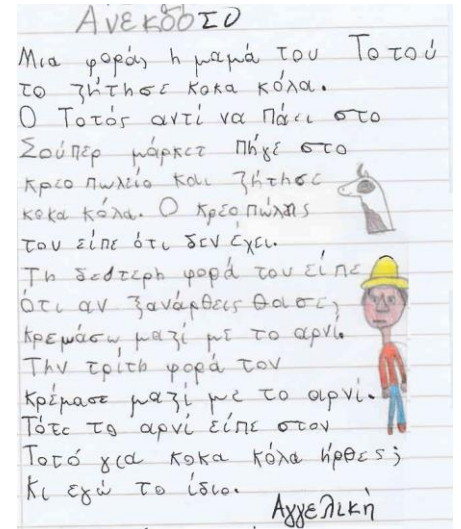 Ανεκδοτο
Μια φορά, η μαμά του Τοτού
το ζήτησε κοκα κόλα.
Ο Τοτός αντί να πάει στο
Σούπερ μάρκετ πήγε στο
κρεοπωλείο και ζήτησε
κοκα κόλα. Ο κρεοπώλης
του είπε ότι δεν έχει.
Τη δεύτερη φορά του είπε
ότι αν ξανάρθεις θα σε
κρεμάσω μαζί με το αρνί.
Την τρίτη φορά τον
κρέμασε μαζί με το αρνί.
Τότε το αρνί είπε στον
Τοτό για κοκα κόλα ήρθες;
Κι εγώ το ίδιο.
Αγγελική